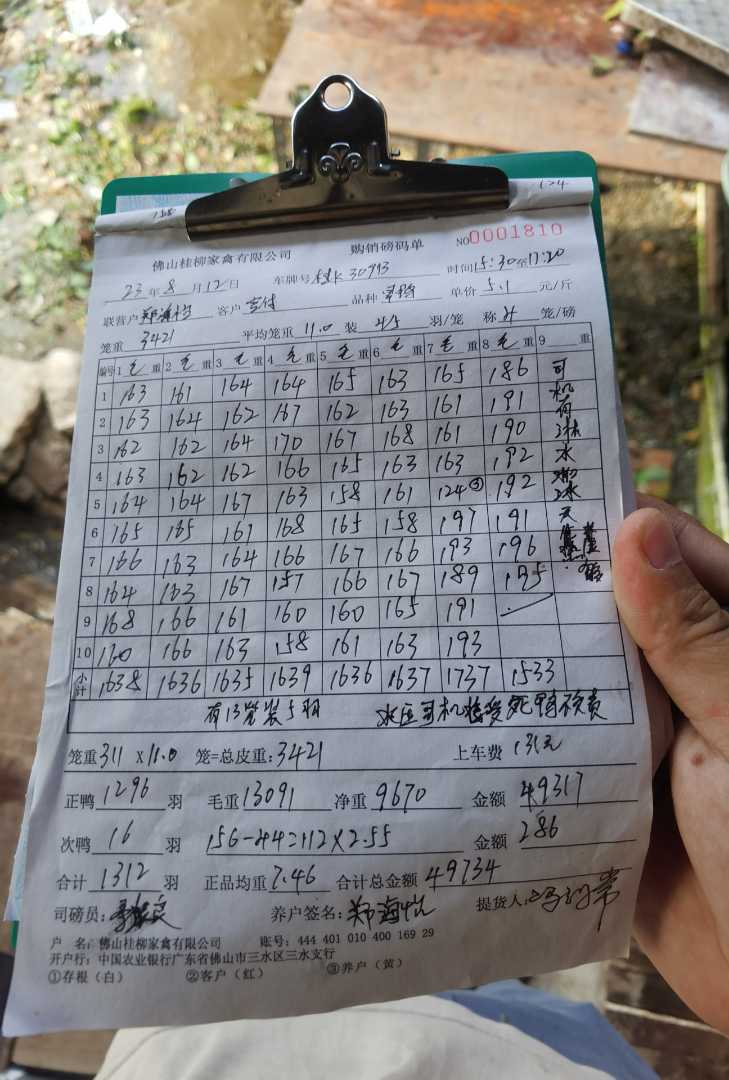 佛山桂柳家禽有限公司 购销磅码单 NO0001810
23年8月12日 车牌号 30993 时间15:30至17:20
联营户 郑海怡 客户 品种 单价 5.1 元/斤
笼重 3421 平均笼重 11.0 装 4/5 羽/笼 称 笼/磅
编号 1 毛 重 2 毛 重 3 毛 重 4 毛 重 5 毛 重 6 毛 重 7 毛 重 8 毛 重 9 重
1 163 161 164 164 165 163 165 186 司
2 163 164 162 167 162 163 161 191 机
3 162 162 164 170 167 168 161 190 淋
4 163 162 162 166 165 163 163 192 水
5 164 164 167 163 158 161 124③ 192
6 165 165 161 168 165 158 197 191 天
7 166 163 164 166 167 166 193 196
8 164 163 167 157 166 167 189 195
9 168 166 161 160 160 165 191
10 160 166 163 158 161 163 193
小计 1638 1636 1635 1639 1636 1637 1737 1533
有13笼装5羽 司机接受死鸭不负责
笼重311 X11.0 笼=总皮重:3421 上车费 131元
正鸭 1296 羽 毛重13091 净重 9670 金额 49317
次鸭 16 羽 156-44=112×2.55 金额 286
合计 1312 羽 正品均重7.46 合计总金额 49734
司磅员: 养户签名: 郑海怡 提货人:
户 名: 佛山桂柳家禽有限公司 账号: 444 401 010 400 169 29
开户行: 中国农业银行广东省佛山市三水区三水支行
①存根（白） ②客户（红） ③养户（黄）